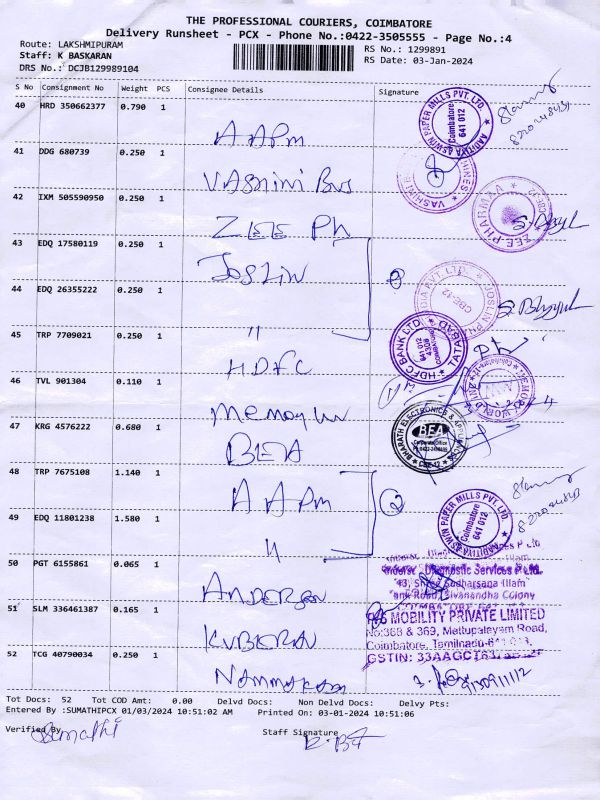 THE PROFESSIONAL COURIERS, COIMBATORE
Delivery Runsheet - PCX - Phone No.:0422-3505555 - Page No.:4
Route: LAKSHMIPURAM
RS No.: 1299891
Staff: K BASKARAN
RS Date: 03-Jan-2024
DRS No.: DCJB129989104
S No Consignment No Weight PCS Consignee Details Signature
40 HRD 350662377 0.790 1
AADHITYA ASWIN PAPER MILLS PVT. LTD.
Coimbatore 641 012
A APM
41 DDG 680739 0.250 1
VAShini Bus
42 IXM 505590950 0.250 1
ZEE PHARMAA
ZEE Ph
43 EDQ 17580119 0.250 1
JOSLIN
44 EDQ 26355222 0.250 1
CBE-12
"
45 TRP 7709021 0.250 1
HDFC BANK LTD. TATABAD
641 012
HDFC
46 TVL 901304 0.110 1
47 KRG 4576222 0.680 1
BHARATH ELECTRONICS &
BEA
CBE-12
BEA
48 TRP 7675108 1.140 1
A APM
AADHITYA ASWIN PAPER MILLS PVT. LTD.
Coimbatore 641 012
49 EDQ 11801238 1.580 1
"
50 PGT 6155861 0.065 1
Diagnostic Services P Ltd.
Sivanandha Colony
ANDERSON
51 SLM 336461387 0.165 1
MOBILITY PRIVATE LIMITED
No:368 & 369, Mettupalayam Road,
Coimbatore, Tamilnadu-641
KUBERAN
GSTIN:
52 TCG 40790034 0.250 1
Tot Docs: 52 Tot COD Amt: 0.00 Delvd Docs: Non Delvd Docs: Delvy Pts:
Entered By :SUMATHIPCX 01/03/2024 10:51:02 AM Printed On: 03-01-2024 10:51:06
Verified By
Sumathi
Staff Signature